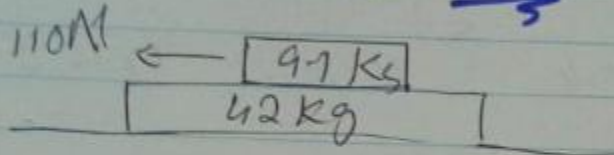 110N
9.7 Kg
42 kg